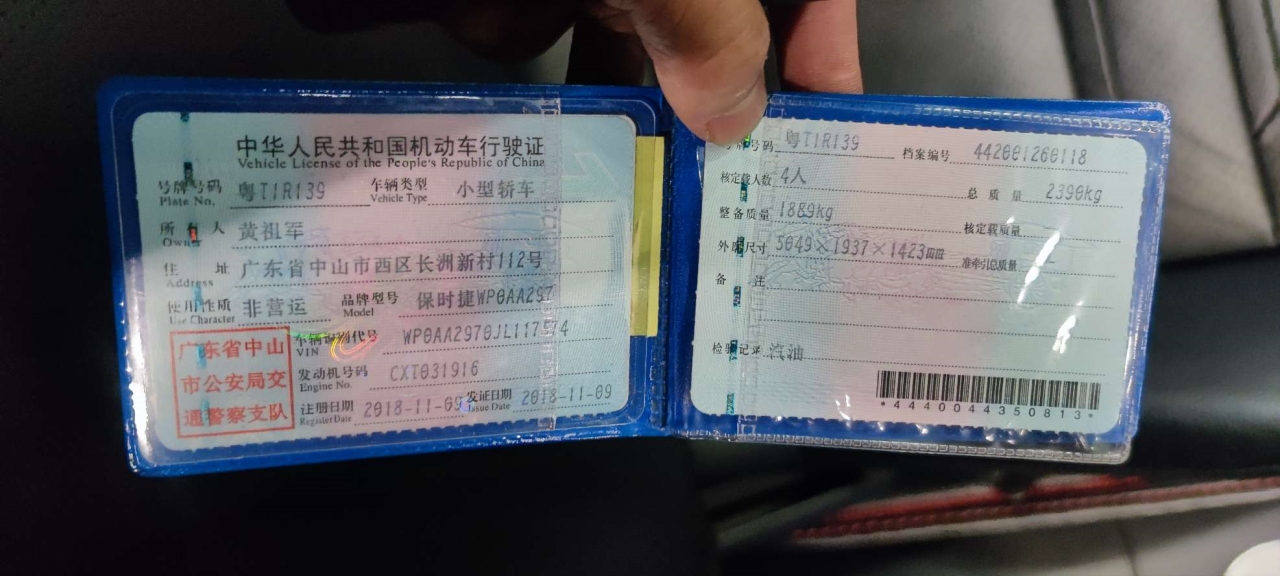 中华人民共和国机动车行驶证
Vehicle License of the People's Republic of China
号牌号码 粤T1R139 车辆类型 小型轿车
Plate No. Vehicle Type
所有人 黄祖军
Owner
住 址 广东省中山市西区长洲新村112号
Address
使用性质 非营运 品牌型号 保时捷WP0AA297
Use Character Model
广东省中山
市公安局交
通警察支队
车辆识别代号
VIN
发动机号码 CXT031916
Engine No.
注册日期 2018-11-09 发证日期 2018-11-09
Register Date Issue Date
号牌号码 粤T1R139 档案编号 442001260118
核定载人数 4人 总 质 量 2390kg
整备质量 1889kg 核定载质量
外廓尺寸 5049×1937×1423mm 准牵引总质量 --
备 注
检验记录 汽油
*4440044350813*